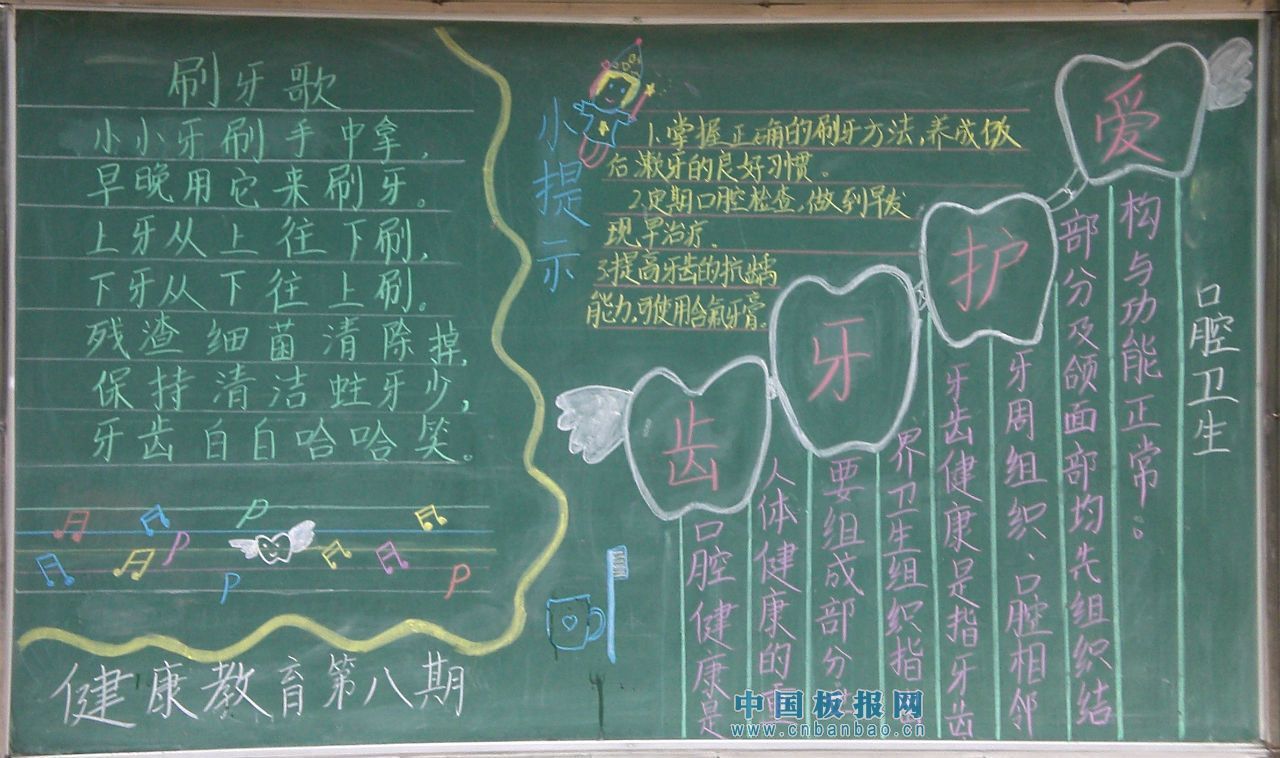 刷牙歌
小小牙刷手中拿，
早晚用它来刷牙。
上牙从上往下刷，
下牙从下往上刷。
残渣细菌清除掉，
保持清洁蛀牙少，
牙齿自自哈哈笑。
健康教育第八期
小提示
1.掌握正确的刷牙方法，养成饭
后漱牙的良好习惯。
2.定期口腔检查，做到早发
现，早治疗。
3.提高牙齿的抗龋
能力，可使用含氟牙膏。
爱护牙齿
口腔卫生
口腔健康是
人体健康的
要组成部分
界卫生组织指
牙齿健康是指牙齿
牙周组织、口腔相邻
部分及颌面部均先组织结
构与功能正常。
中国板报网
www.cnbanbao.cn